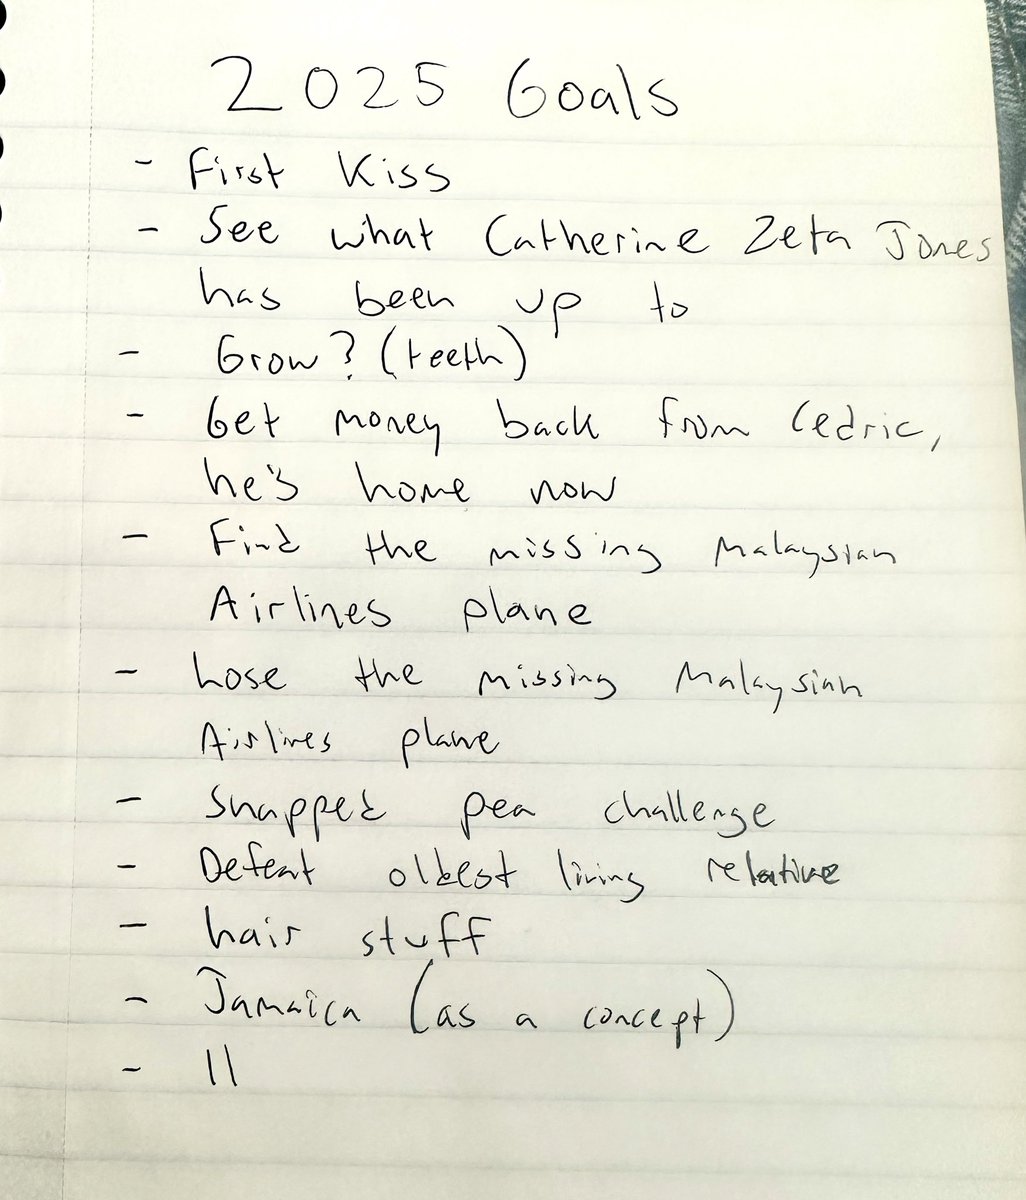 2025 Goals
- First Kiss
- See what Catherine Zeta Jones
has been up to
- Grow? (teeth)
- Get money back from Cedric,
he's home now
- Find the missing Malaysian
Airlines plane
- Lose the missing Malaysian
Airlines plane
- Snapped pea challenge
- Defeat oldest living relative
- hair stuff
- Jamaica (as a concept)
- 11